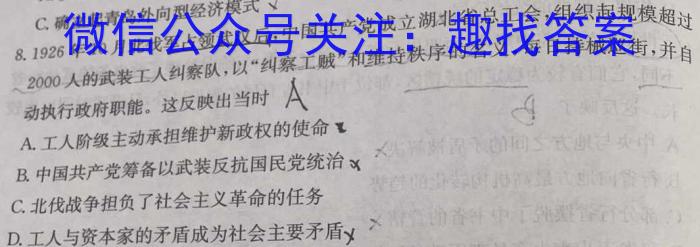 C. 确 青岛外向型经济模式
微信公众号关注：趣找答案
8. 1926年 月北伐军占领武汉后,中国共产党成立湖北省总工会,组织起规模超过
2000人的武装工人纠察队,以“纠察工贼”和维持秩序的名义,每日持械上街,并自
动执行政府职能。这反映出当时 A
A. 工人阶级主动承担维护新政权的使命
B. 中国共产党筹备以武装反抗国民党统治 x
C. 北伐战争担负了社会主义革命的任务
D. 工人与资本家的矛盾成为社会主要矛盾 x